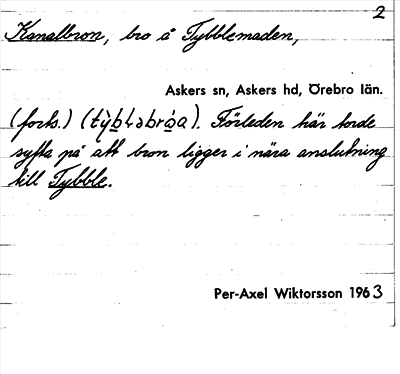 2
Kanalbron, bro å Tybblemaden,
Askers sn, Askers hd, Örebro län.
(forts.) Förleden här torde
syfta på att bron ligger i nära anslutning
till Tybble.
Per-Axel Wiktorsson 1963